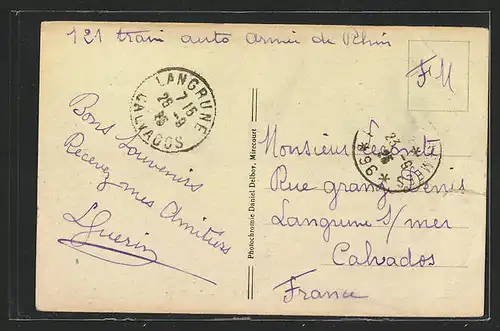 121 train auto armée de Pékin
FM
LANGRUNE
7 15
26 -9
CALVADOS
Bons Souvenirs
Recevez mes Amitiés
LGuerin
Photochromie Daniel Delboy, Mirecourt
Monsieur
Rue grange Denis
Langrune s/mer
Calvados
France
* 96 *